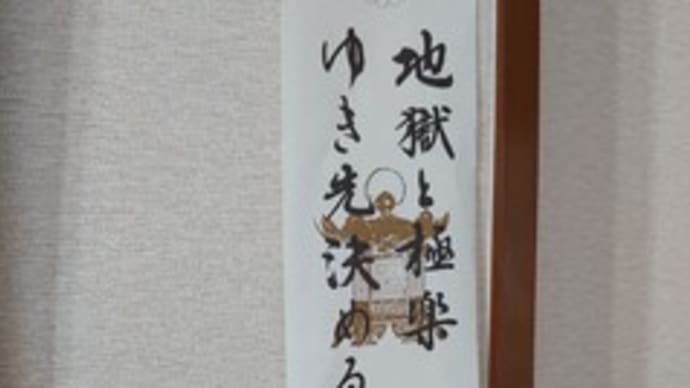 地獄と極楽
ゆき先決める